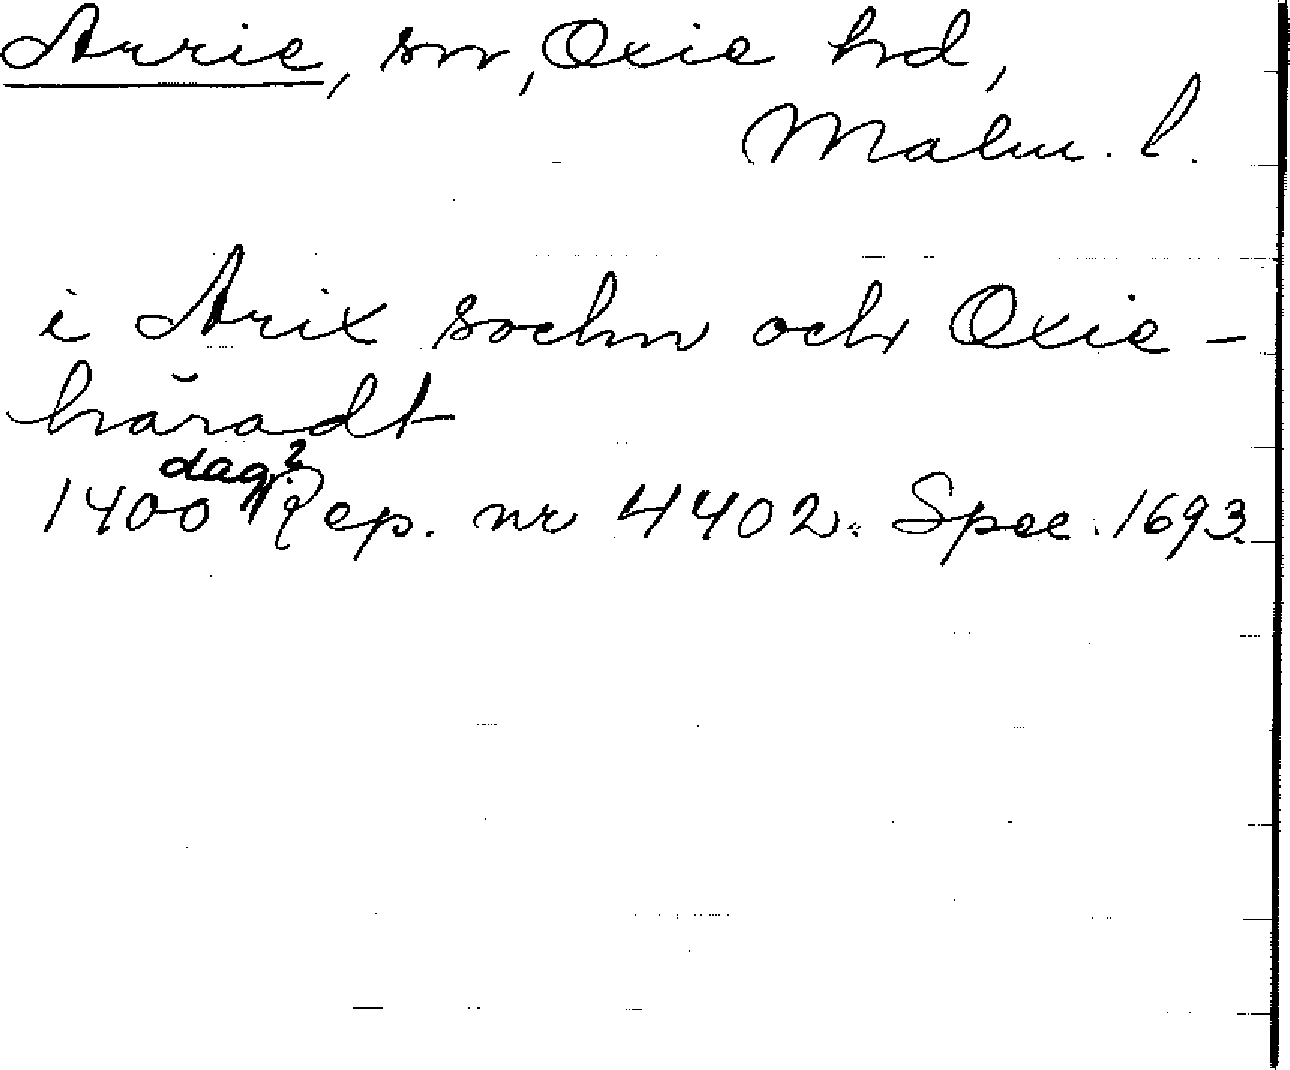 Arrie, sn, Oxie hd,
Malm. l.
i Arix sochn och Oxie-
häradt
dag?
1400 Rep. nr 4402. Spec. 1693.